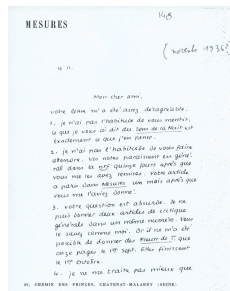 148
MESURES
(novembre 1936?)
le 11.
Mon cher ami,
votre lettre m'a été assez désagréable.
1. je n'ai pas l'habitude de vous mentir,
ce que je vous ai dit du Sens de la Nuit est
exactement ce que j'en pense.
2. je n'ai pas l'habitude de vous faire
attendre. Vos notes paraissent en géné-
ral dans la nrf quinze jours après que
vous me les avez remises. Votre article
a paru dans Mesures un mois après que
vous me l'aviez donné.
3. votre question est absurde. Je ne
puis donner deux articles de critique
générale dans un même numéro. Vous
le savez comme moi. Or il ne m'a été
possible de donner des Fleurs de T. que
onze pages le 1er Sept. Elles finissent
le 1er Octobre.
4. je ne me traite pas mieux que
, CHEMIN DES PRINCES, CHATENAY-MALABRY (SEINE)